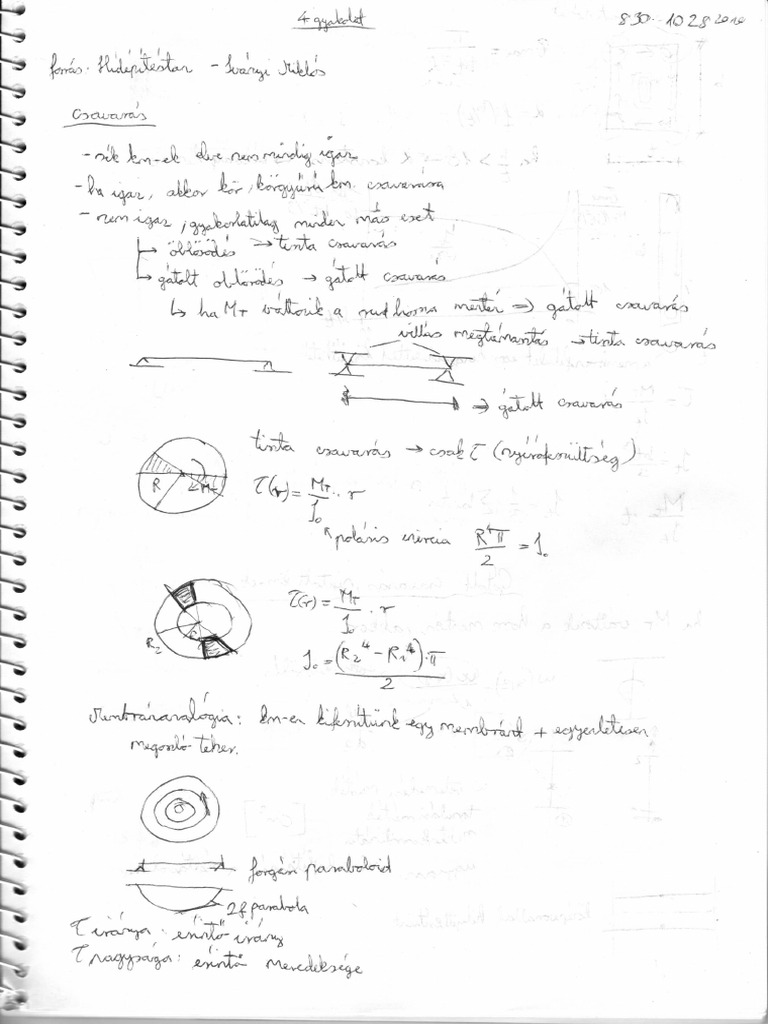 4 gyakolat
8 30 - 10 28 2010
forrás: Hídépítéstan - Iványi Miklós
Csavarás
- sík km-ek elve nem mindig igaz
- ha igaz, akkor kör, körgyűrű km. csavarása
- nem igaz, gyakorlatilag minden más eset
↳ öblösödés → tiszta csavarás
↳ gátolt öblösödés → gátolt csavarás
↳ ha MT változik a rúd hossza mentén => gátolt csavarás
villás megtámasztás → tiszta csavarás
=> gátolt csavarás
tiszta csavarás → csak τ (nyírófeszültség)
R MT
τ(r) = MT/J₀ · r
poláris inercia R⁴π/2 = J₀
R₂
τ(r) = MT/J₀ · r
J₀ = (R₂⁴ - R₁⁴)·π / 2
Membránanalógia: km-en kifeszítünk egy membránt + egyenletesen
megoszló teher.
forgási paraboloid
2f parabola
τ iránya: érintő irány
τ nagysága: érintő meredeksége